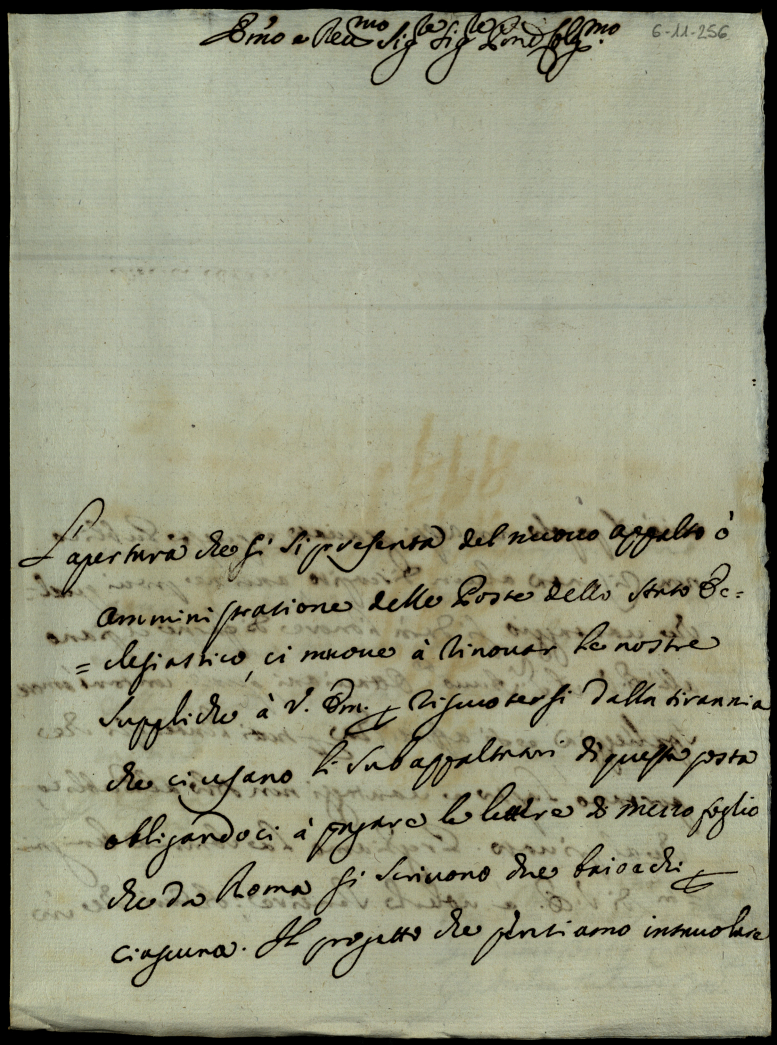 Emo e Reumo Sigre Sigre Pnē Colmo.
6-11-256
L'apertura che si ripresenta del nuouo appalto ò
Amministratione delle Poste dello Stato Ec=
=clesiastico, ci muoue à rinouar le nostre
suppliche à V. Em. p riscuotersi dalla tirannia
che ci usano li subappaltatori di questa posta
obligandoci à pagare le lettre di mezzo foglio
che da Roma si scriuono due baiocchi p
ciascuna. Il progetto che sentiamo intauolare